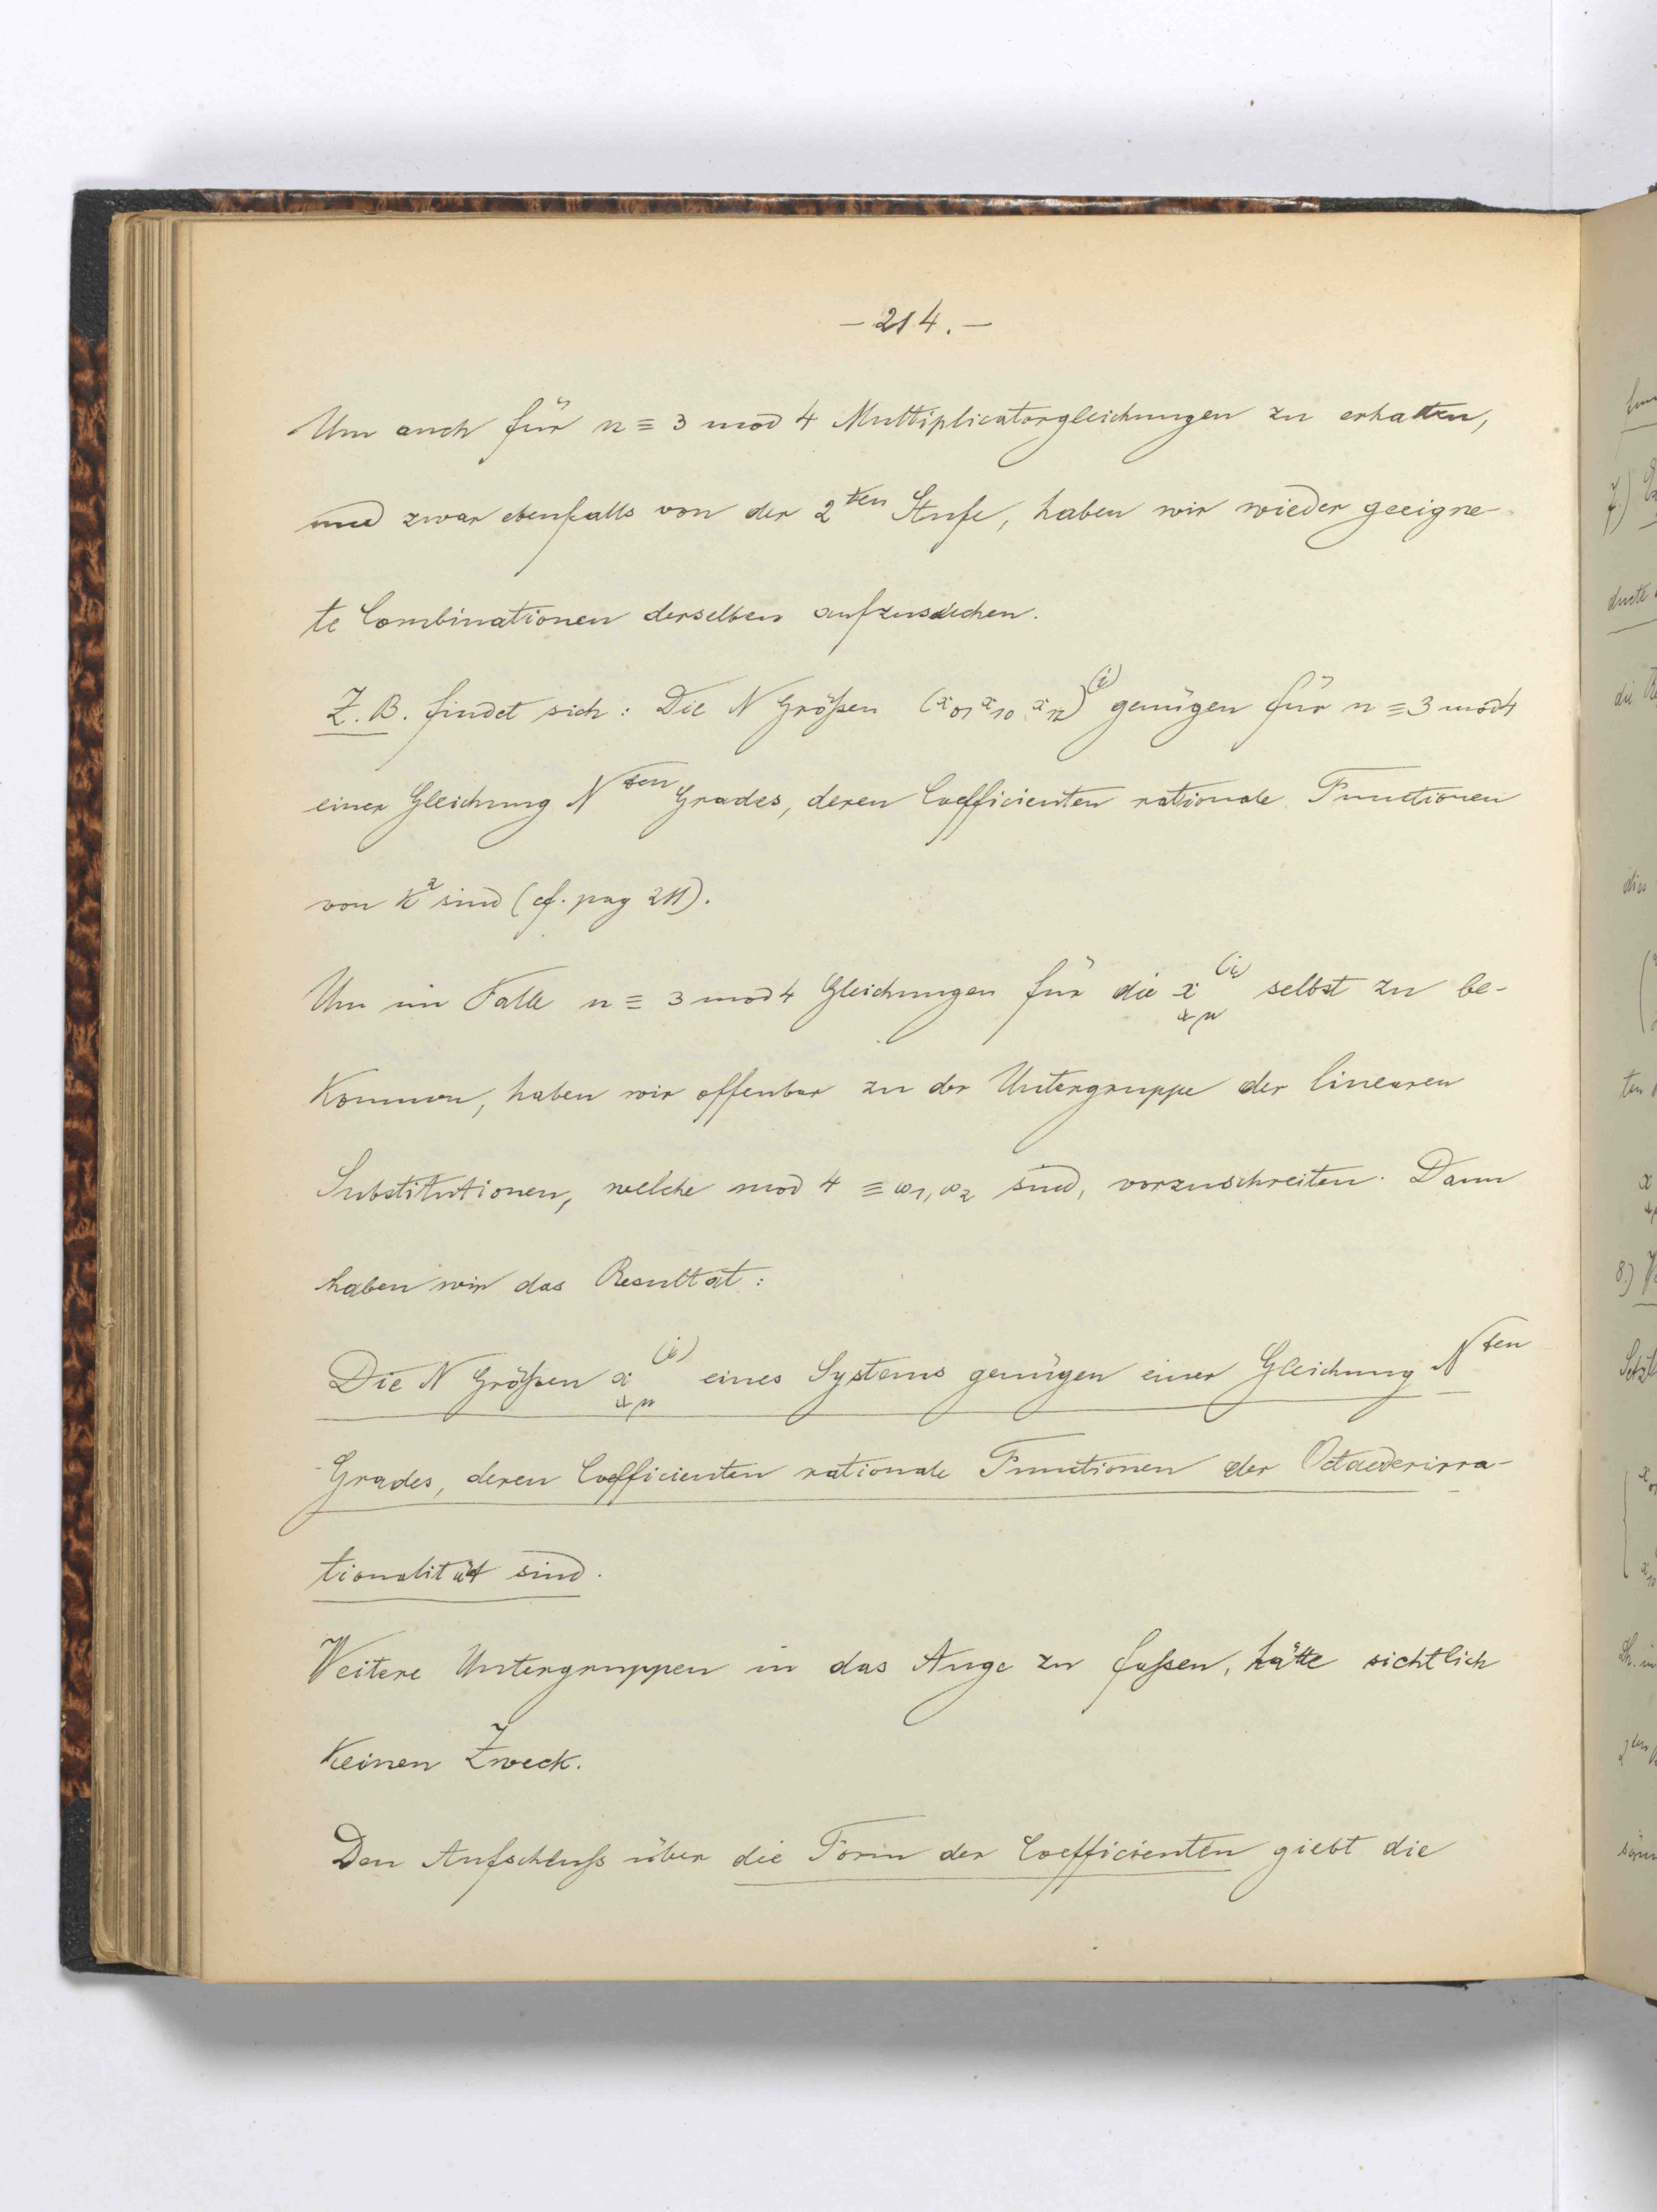 – 214. –
Um auch für n ≡ 3 mod 4 Multiplicatorgleichungen zu erhalten,
und zwar ebenfalls von der 2ten Stufe, haben wir wieder geeigne-
te Combinationen derselben aufzusuchen.
Z. B. findet sich: Die N Größen (x₀₁ x₁₀ x₁₂)⁽ⁱ⁾ genügen für n ≡ 3 mod 4
einer Gleichung Nten Grades, deren Coefficienten rationale Functionen
von k² sind (cf. pag 211).
Um im Falle n ≡ 3 mod 4 Gleichungen für die x⁽ⁱ⁾ selbst zu be-
kommen, haben wir offenbar zu der Untergruppe der linearen
Substitutionen, welche mod 4 ≡ ω₁, ω₂ sind, vorzuschreiten. Dann
haben wir das Resultat:
Die N Größen x⁽ⁱ⁾ eines Systems genügen einer Gleichung Nten
Grades, deren Coefficienten rationale Functionen der Octaederirra-
tionalität sind.
Weitere Untergruppen in das Auge zu faßen, hätte sichtlich
keinen Zweck.
Den Aufschluß über die Form der Coefficienten giebt die